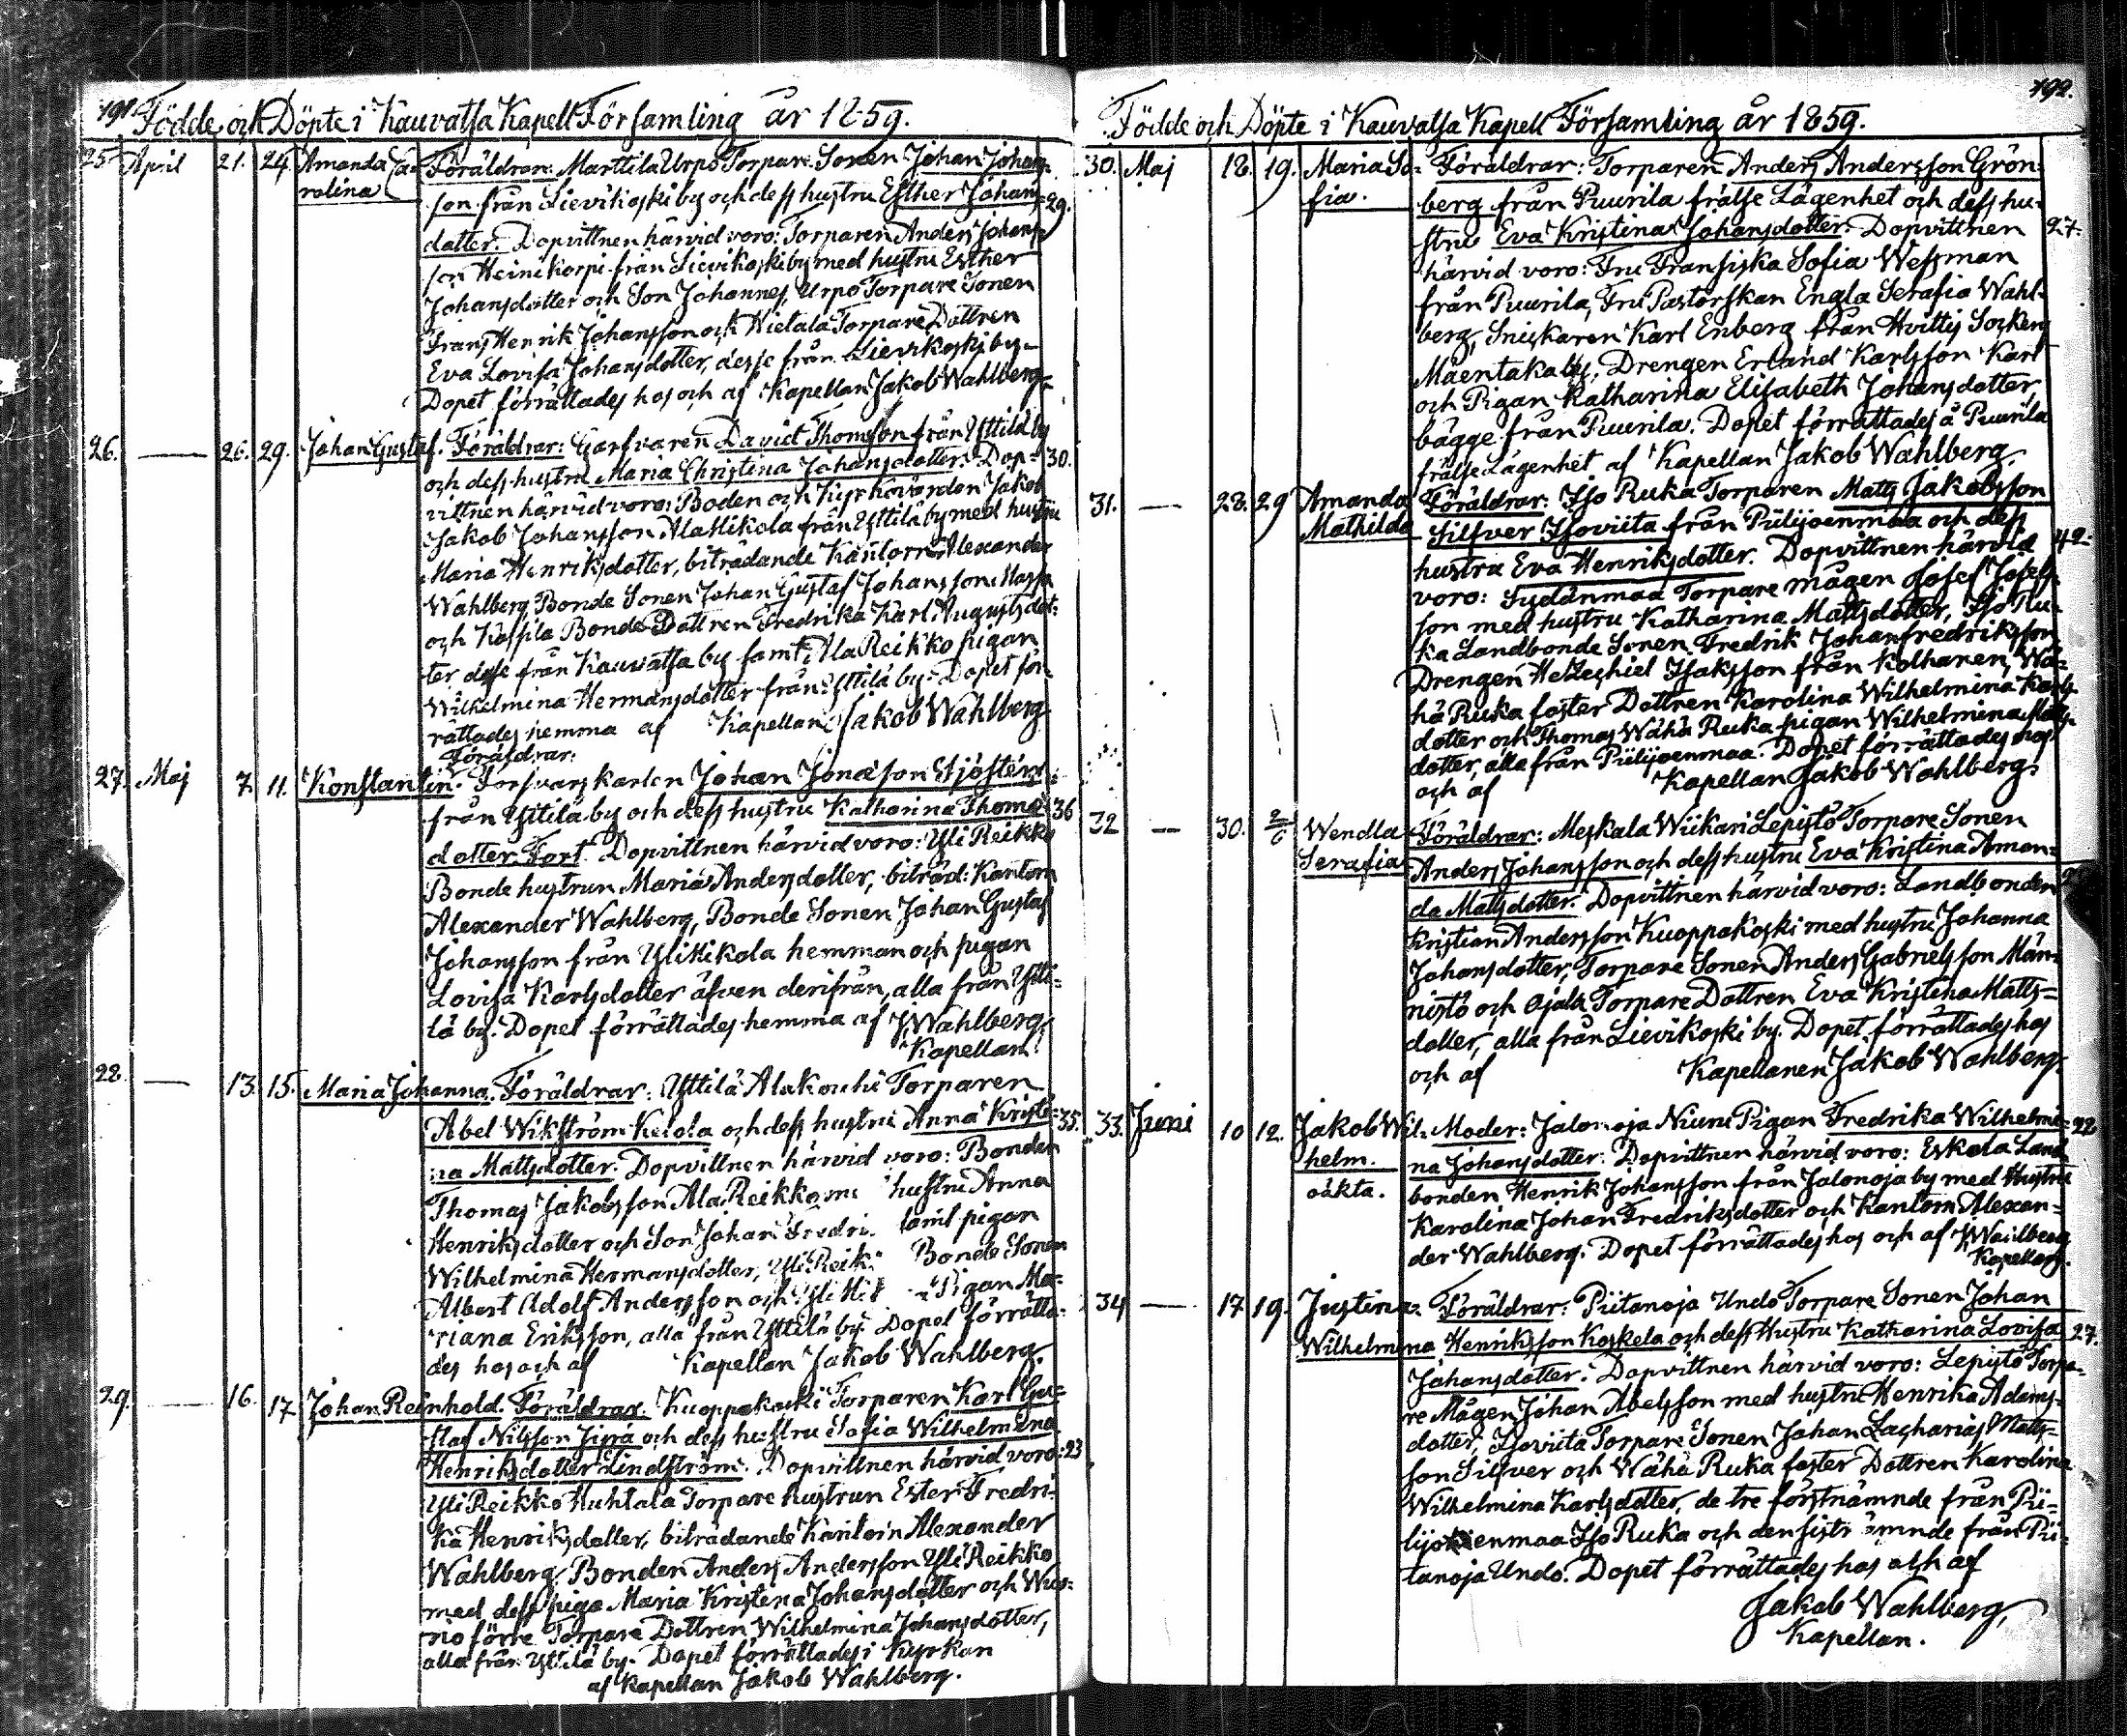 191. Födde och Döpte i Kauvatsa Kapell Församling år 1859.
25. April 21. 24. Amanda Ca- Föräldrar: Marttila Urpo Torpare Sonen Johan Johans-
rolina son från Lievikoski by och dess hustru Esther Johans- 29.
dotter. Dopvittnen härvid voro: Torparen Anders Johans-
son Heinikorpi från Lievikoski by med hustru Esther
Johansdotter och Son Johannes, Urpo Torpare Sonen
Frans Henrik Johansson och Hietala Torpare Dottren
Eva Lovisa Johansdotter, desse från Lievikoski by.
Dopet förrättades hos och af Kapellan Jakob Wahlberg.
26. — 26. 29. Johan Gustaf. Föräldrar: Garfvaren David Thomsson från Yttilä by
och dess hustru Maria Christina Johansdotter. Dop- 30.
vittnen härvid voro: Boden och Kyrkovärden Jakob
Jakob Johansson Ala Mikola från Yttilä by med hustru
Maria Henriksdotter, biträdande Kantorn Alexander
Wahlberg, Bonde Sonen Johan Gustaf Johansson
och Kassila Bonde Dottren Fredrika Karl Augustsdot-
ter desse från Kauvatsa by samt Ala Reikko pigan
Wilhelmina Hermansdotter från Yttilä by. Dopet för-
rättades hemma af Kapellan Jakob Wahlberg
Föräldrar:
27. Maj 7. 11. Konstantin. Forsvarskarlen Johan Jonasson Sjösten
från Yttilä by och dess hustru Katharina Thoma- 36
dotter Fort. Dopvittnen härvid voro: Yli Reikko
Bonde hustrun Maria Andersdotter, biträd: Kantorn
Alexander Wahlberg, Bonde Sonen Johan Gustaf
Johansson från Yli Mikola hemman och pigan
Lovisa Karlsdotter äfven derifrån, alla från Ytti-
lä by. Dopet förrättades hemma af J. Wahlberg,
Kapellan.
28. — 13. 15. Maria Johanna. Föräldrar: Yttilä Alakouhi Torparen
Abel Wikström Ketola och dess hustru Anna Kristi- 35.
na Mattsdotter. Dopvittnen härvid voro: Bonden
Thomas Jakobsson Ala Reikko me hustru Anna
Henriksdotter och Son Johan Fredri. samt pigan
Wilhelmina Hermansdotter, Yli Reik Bonde Sonen
Albert Adolf Andersson och Yli Mik Pigan Ma-
riana Eriksson, alla från Yttilä by. Dopet förrätta-
des hos och af Kapellan Jakob Wahlberg.
29. — 16. 17 Johan Reinhold. Föräldrar. Kuoppakoski Torparen Karl Gu-
staf Nilsson Jipra och dess hustru Sofia Wilhelmina
Henriksdotter Lindström. Dopvittnen härvid voro: 23
Yli Reikko Huhtala Torpare hustrun Ester Fredri-
ka Henriksdotter, biträdande Kantorn Alexander
Wahlberg, Bonden Anders Andersson Yli Reikko
med dess piga Maria Kristina Johansdotter och Wuo-
rio förre Torpare Dottren Wilhelmina Johansdotter,
alla från Yttilä by. Dopet förrättades i Kyrkan
af Kapellan Jakob Wahlberg.
192.
Födde och Döpte i Kauvatsa Kapell Församling år 1859.
30. Maj 18. 19. Maria So- Föräldrar: Torparen Anders Andersson Grön-
fia. berg från Puurila frälse Lägenhet och dess hu-
stru Eva Kristina Johansdotter. Dopvittnen 27.
härvid voro: Fru Fransiska Sofia Wessman
från Puurila, Fru Pastorskan Engla Serafia Wahl-
berg, Snickaren Karl Enberg från Hvittis Socken
Mäentaka by, Drengen Erland Karlsson Karl
och Pigan Katharina Elisabeth Johansdotter
bägge från Puurila. Dopet förrättades å Puurila
frälse Lägenhet af Kapellan Jakob Wahlberg.
31. — 28. 29 Amanda Föräldrar: Iso Ruka Torparen Matts Jakobsson
Mathilda Silfver Isoviita från Piilijoenmaa och dess 42.
hustru Eva Henriksdotter. Dopvittnen härvid
voro: Sydänmaa Torpare mågen Josef Josefs-
son med hustru Katharina Mattsdotter, Iso Ru-
ka Landbonde Sonen Fredrik Johanfredriksson,
Drengen Hetzechiel Isaksson från Kolhanen, Wä-
hä Ruka foster Dottren Karolina Wilhelmina Karls-
dotter och Thomas Wähä Ruka pigan Wilhelmina Matts-
dotter, alla från Piilijoenmaa. Dopet förrättades hos
och af Kapellan Jakob Wahlberg.
32 — 30. 2/6 Wendla Föräldrar: Meskala Wiikari Lepistö Torpare Sonen
Serafia Anders Johansson och dess hustru Eva Kristina Aman-
da Mattsdotter. Dopvittnen härvid voro: Landbonden
Kristian Andersson Kuoppakoski med hustru Johanna
Johansdotter, Torpare Sonen Anders Gabrielsson Män-
nistö och Ojala Torpare Dottren Eva Kristina Matts-
dotter, alla från Lievikoski by. Dopet förrättades hos
och af Kapellanen Jakob Wahlberg.
33. Juni 10 12. Jakob Wil- Moder: Jalonoja Niuni Pigan Fredrika Wilhelmi- 22
helm. na Johansdotter. Dopvittnen härvid voro: Eskola Land-
oäkta. bonden Henrik Johansson från Jalonoja by med Hustru
Karolina Johan Fredriksdotter och Kantorn Alexan-
der Wahlberg. Dopet förrättades hos och af J. Wahlberg
Kapellan.
34 — 17 19. Justina Föräldrar: Piitanoja Undo Torpare Sonen Johan
Wilhelmina Henriksson Koskela och dess Hustru Katharina Lovisa 27.
Johansdotter. Dopvittnen härvid voro: Lepistö Torpa-
re Mågen Johan Abelsson med hustru Henrika Adams-
dotter, Isoviita Torpare Sonen Johan Zacharias Matts-
son Silfver och Wähä Ruka foster Dottren Karolina
Wilhelmina Karlsdotter, de tre förstnämnde från Pii-
lijoenmaa Iso Ruka och den sistnämnde från Pii-
tanoja Undo. Dopet förrättades hos och af
Jakob Wahlberg,
Kapellan.